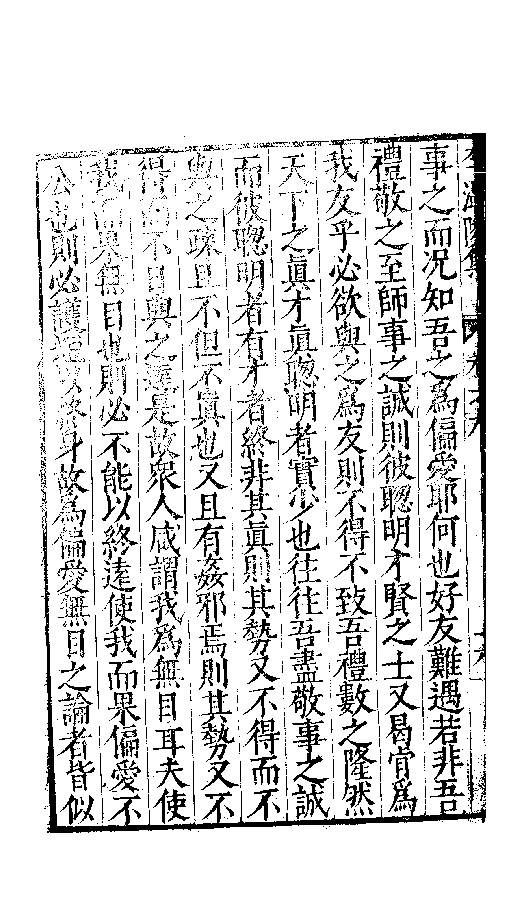 事之而况知吾之爲偏愛耶何也好友難遇若非吾
禮敬之至師事之誠則彼聰明才賢之士又曷肯爲
我友乎必欲與之爲友則不得不致吾禮數之隆然
天下之眞才眞聰明者實少也往往吾盡敬事之誠
而彼聰明者有才者終非其眞則其勢又不得而不
與之疎且不但不眞也又且有姦邪焉則其勢又不
得不日與之遠是故衆人咸謂我爲無目耳夫使
我果無目也則必不能以終遠使我而果偏愛不
公也則必護短以終身故爲偏愛無目之論者皆似